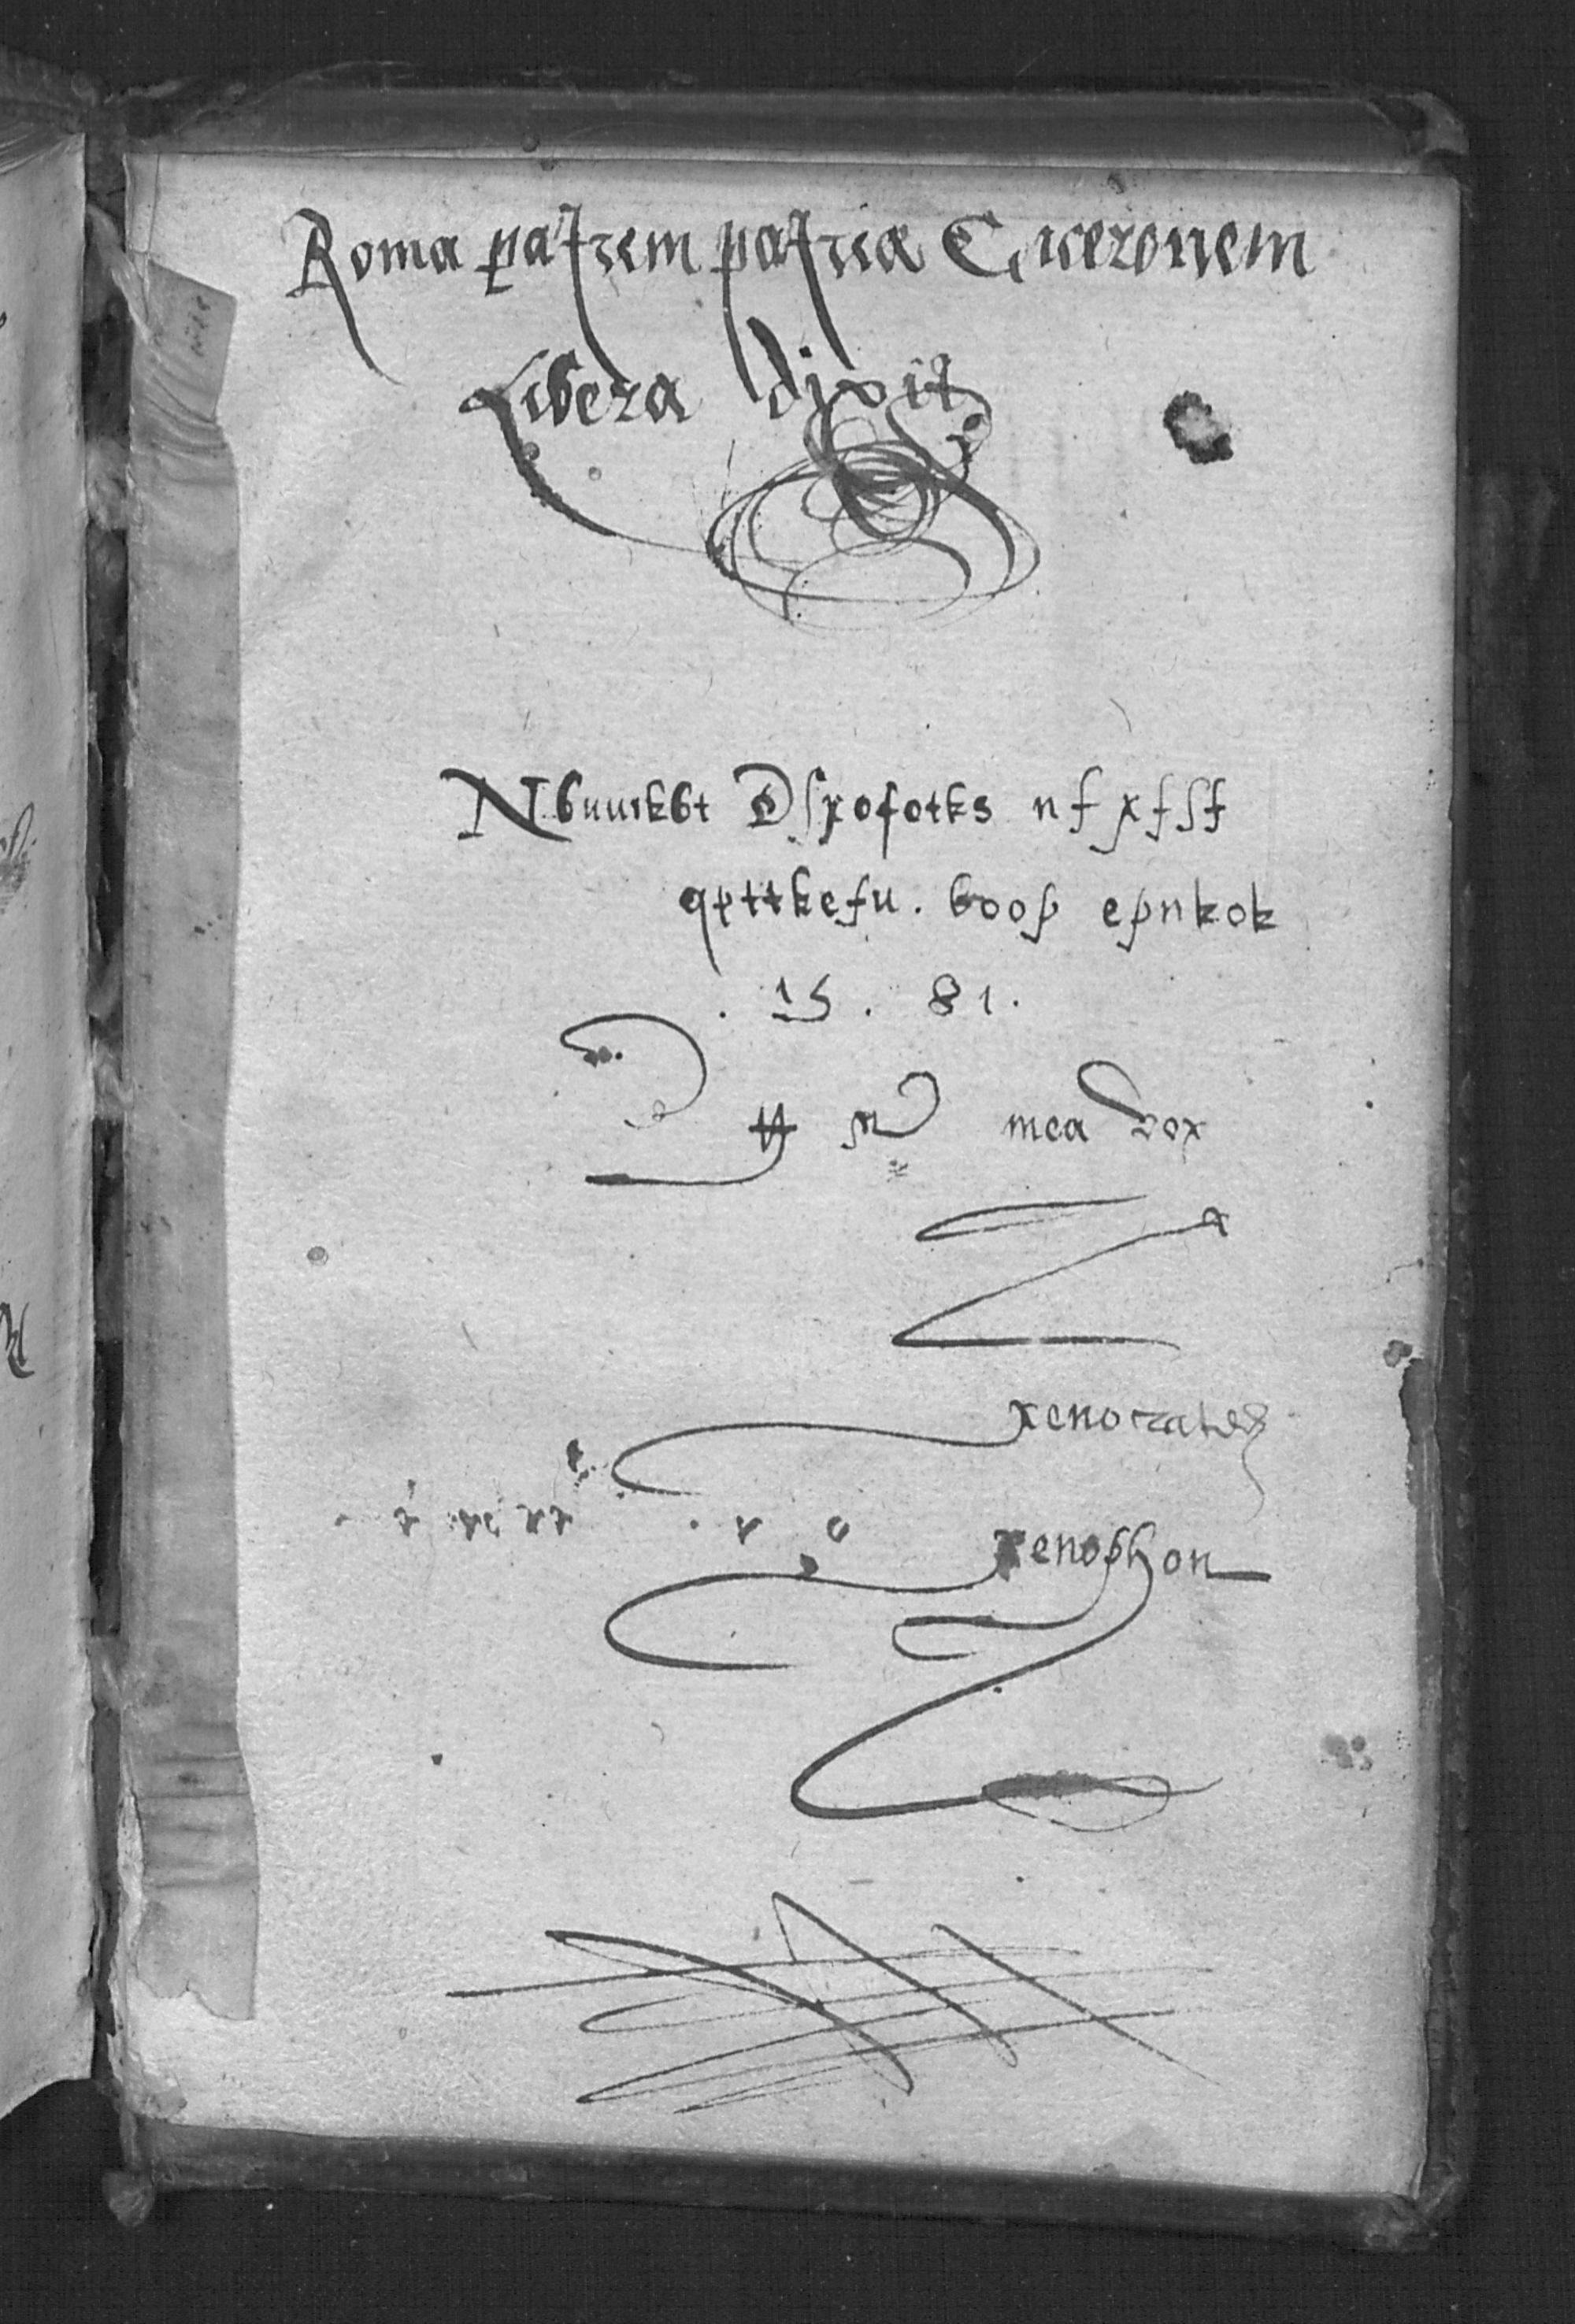 Roma patrem patriæ Ciceronem
Libera dixit
Nbuuikbt Dſpofotks nf xfſf
qpttkefu. boop epnkok
. 15 . 81 .
mea vox
xenocrates
xenophon